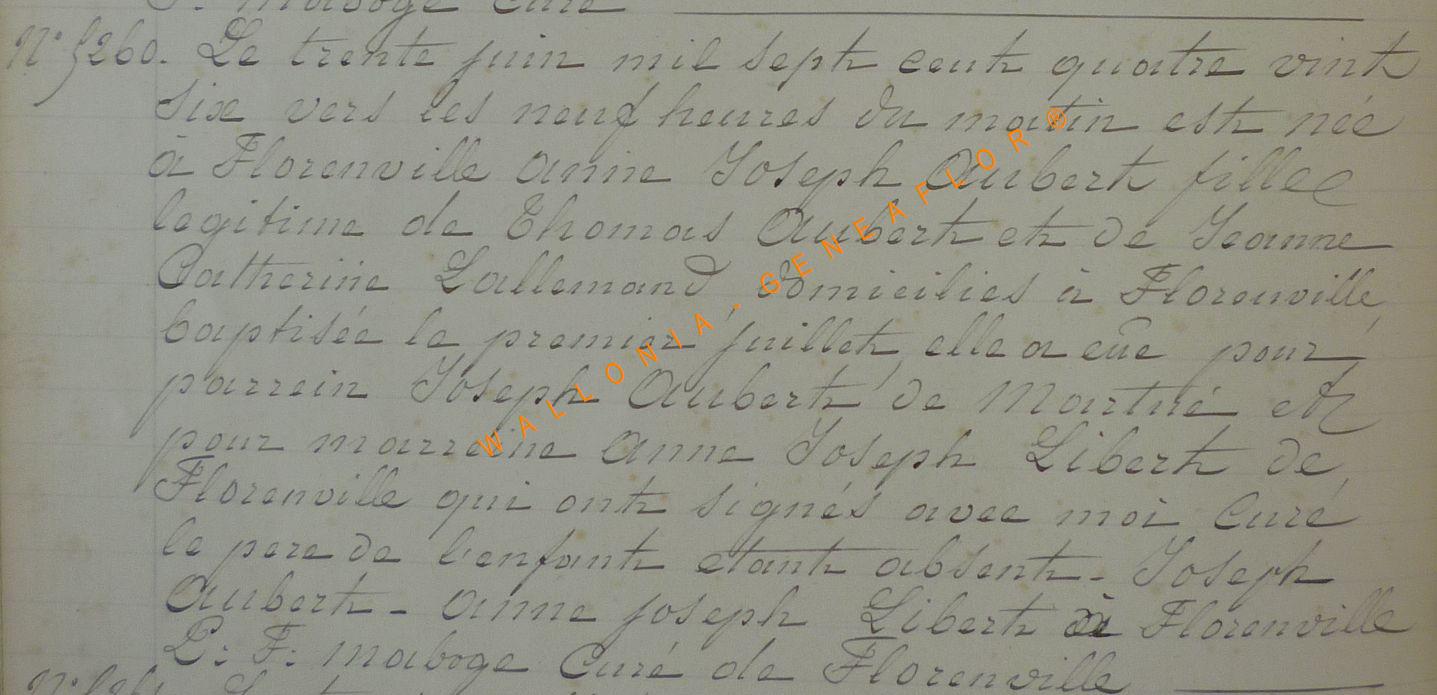 F. Maboge Curé
N° 5260. Le trente juin mil sept cent quatre vint
six vers les neuf heures du matin est née
à Florenville Anne Joseph Aubert fille
legitime de Thomas Aubert et de Jeanne
Catherine Lallemand, domiciliés à Florenville,
baptisée le premier juillet, elle a eûe pour
parrein Joseph Aubert de Martué et
pour marreine Anne Joseph Libert de
Florenville qui ont signés avec moi Curé
le pere de l'enfant etant absent - Joseph
Aubert - Anne joseph Libert de Florenville
P: F: Maboge Curé de Florenville
WALLONIA - GENEAFLOR ®